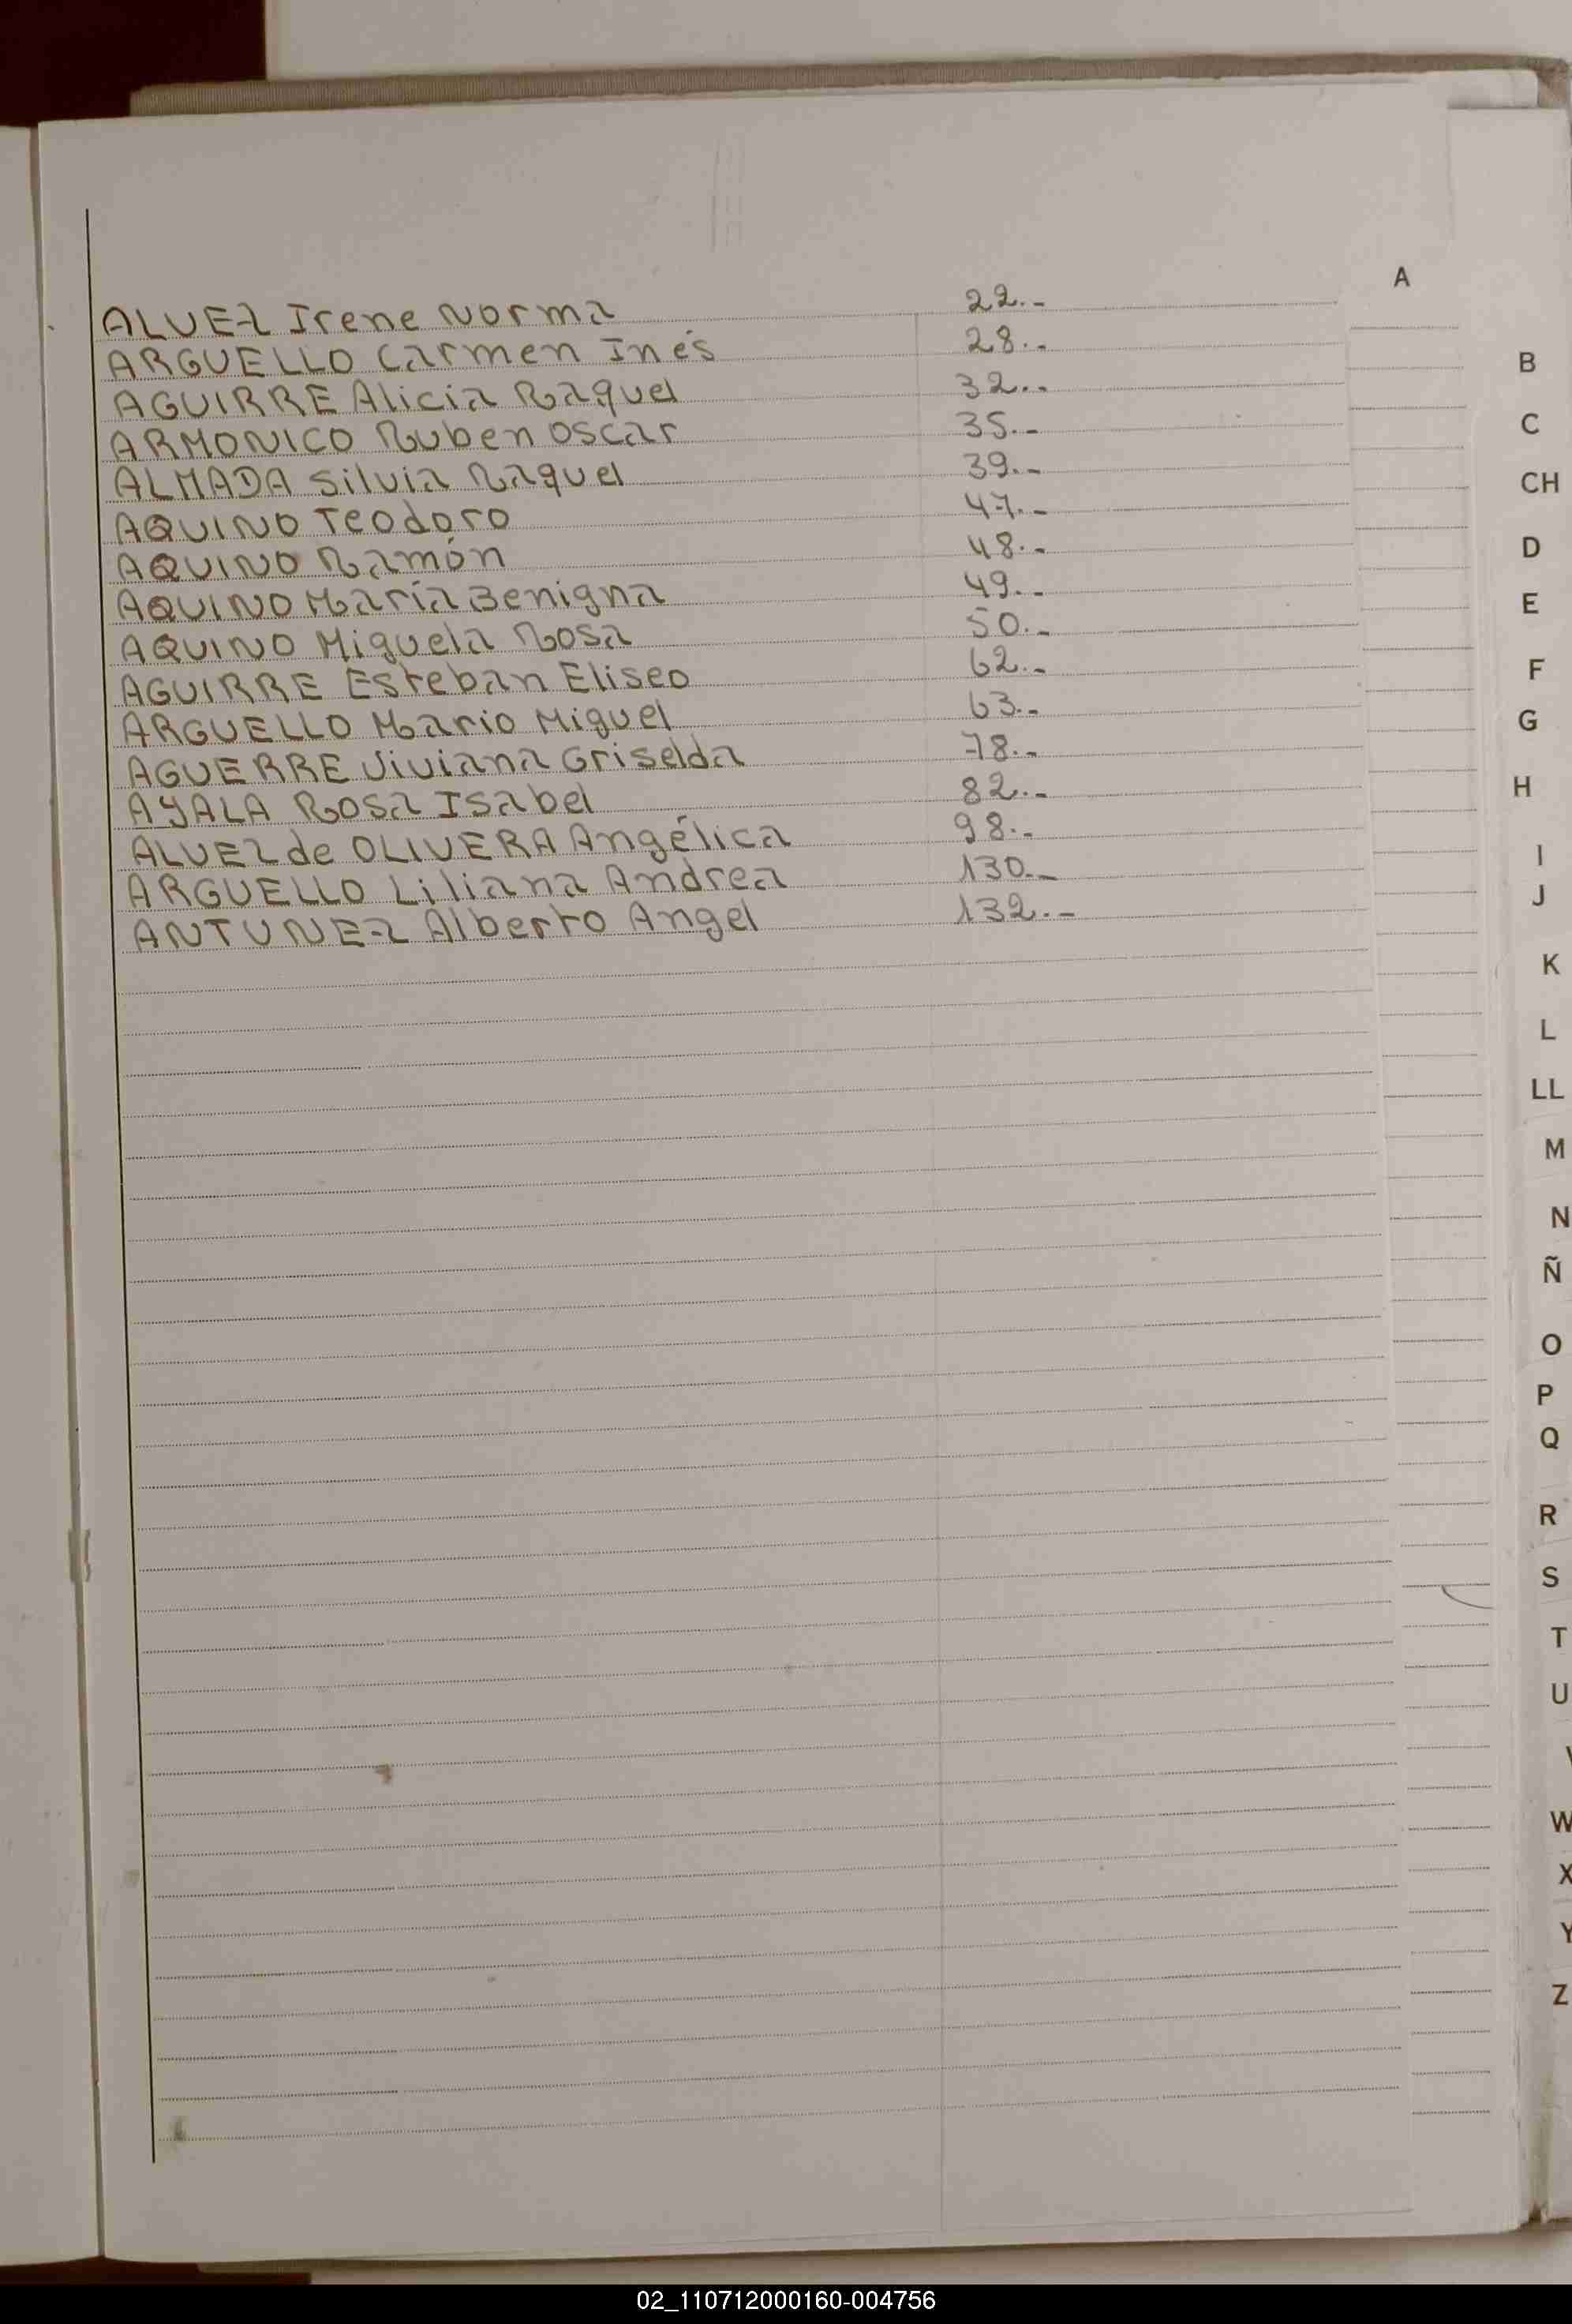 A
ALVEZ Irene Norma 22.-
ARGUELLO Carmen Inés 28.-
AGUIRRE Alicia Raquel 32.-
ARMONICO Ruben Oscar 35.-
ALMADA Silvia Raquel 39.-
AQUINO Teodoro 47.-
AQUINO Ramón 48.-
AQUINO María Benigna 49.-
AQUINO Miguela Rosa 50.-
AGUIRRE Esteban Eliseo 62.-
ARGUELLO Mario Miguel 63.-
AGUERRE Viviana Griselda 78.-
AYALA Rosa Isabel 82.-
ALVEZ de OLIVERA Angélica 98.-
ARGUELLO Liliana Andrea 130.-
ANTUNEZ Alberto Angel 132.-
B
C
CH
D
E
F
G
H
I
J
K
L
LL
M
N
Ñ
O
P
Q
R
S
T
U
W
X
Y
Z
02_110712000160-004756